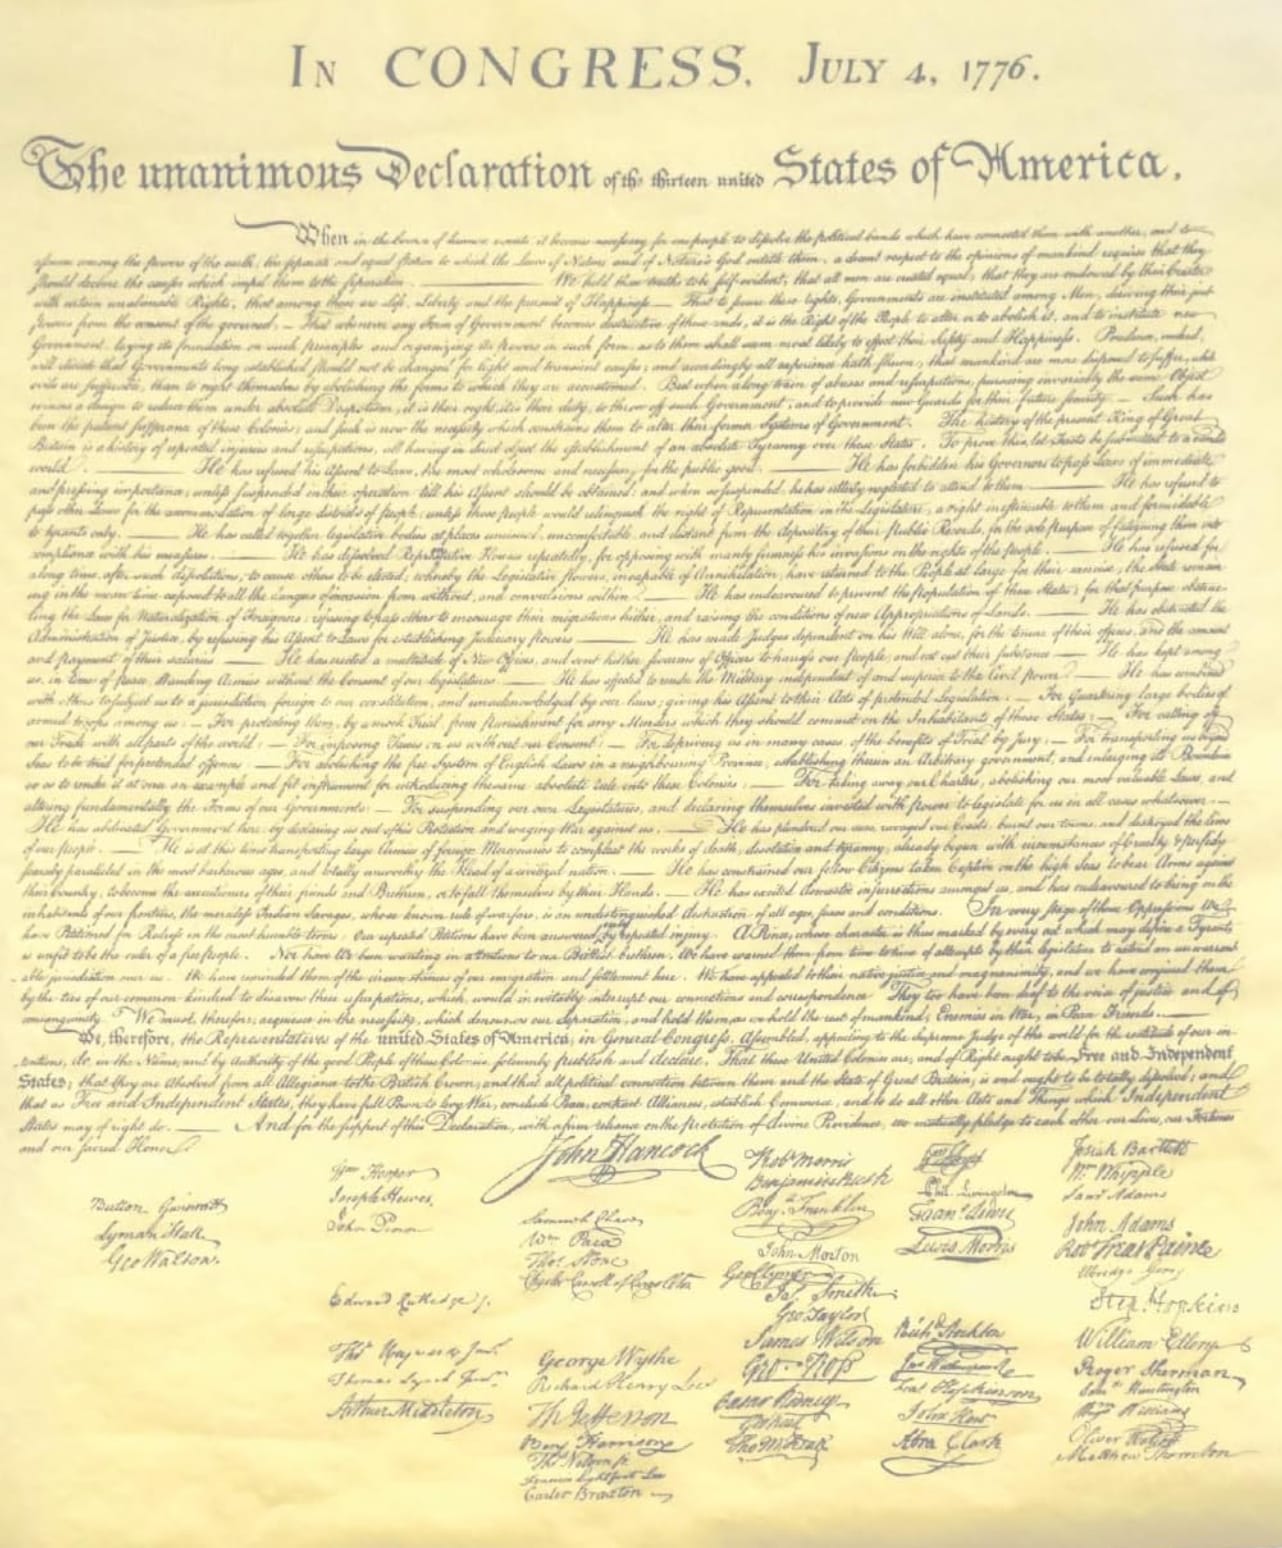 IN CONGRESS, JULY 4, 1776.
The unanimous Declaration of the thirteen united States of America,
When in the Course of human events, it becomes necessary for one people to dissolve the political bands which have connected them with another, and to
assume among the powers of the earth, the separate and equal station to which the Laws of Nature and of Nature's God entitle them, a decent respect to the opinions of mankind requires that they
should declare the causes which impel them to the separation. — We hold these truths to be self-evident, that all men are created equal, that they are endowed by their Creator
with certain unalienable Rights, that among these are Life, Liberty and the pursuit of Happiness.— That to secure these rights, Governments are instituted among Men, deriving their just
powers from the consent of the governed,— That whenever any Form of Government becomes destructive of these ends, it is the Right of the People to alter or to abolish it, and to institute new
Government, laying its foundation on such principles and organizing its powers in such form, as to them shall seem most likely to effect their Safety and Happiness. Prudence, indeed,
will dictate that Governments long established should not be changed for light and transient causes; and accordingly all experience hath shewn, that mankind are more disposed to suffer, while
evils are sufferable, than to right themselves by abolishing the forms to which they are accustomed. But when a long train of abuses and usurpations, pursuing invariably the same Object
evinces a design to reduce them under absolute Despotism, it is their right, it is their duty, to throw off such Government, and to provide new Guards for their future security.— Such has
been the patient sufferance of these Colonies; and such is now the necessity which constrains them to alter their former Systems of Government. The history of the present King of Great
Britain is a history of repeated injuries and usurpations, all having in direct object the establishment of an absolute Tyranny over these States. To prove this, let Facts be submitted to a candid
world. — He has refused his Assent to Laws, the most wholesome and necessary for the public good. — He has forbidden his Governors to pass Laws of immediate
and pressing importance, unless suspended in their operation till his Assent should be obtained; and when so suspended, he has utterly neglected to attend to them. — He has refused to
pass other Laws for the accommodation of large districts of people, unless those people would relinquish the right of Representation in the Legislature, a right inestimable to them and formidable
to tyrants only. — He has called together legislative bodies at places unusual, uncomfortable, and distant from the depository of their Public Records, for the sole purpose of fatiguing them into
compliance with his measures. — He has dissolved Representative Houses repeatedly, for opposing with manly firmness his invasions on the rights of the people. — He has refused for
a long time, after such dissolutions, to cause others to be elected; whereby the Legislative powers, incapable of Annihilation, have returned to the People at large for their exercise; the State remain-
ing in the mean time exposed to all the dangers of invasion from without, and convulsions within. — He has endeavoured to prevent the population of these States; for that purpose obstruc-
ting the Laws for Naturalization of Foreigners; refusing to pass others to encourage their migrations hither, and raising the conditions of new Appropriations of Lands. — He has obstructed the
Administration of Justice, by refusing his Assent to Laws for establishing Judiciary powers. — He has made Judges dependent on his Will alone, for the tenure of their offices, and the amount
and payment of their salaries. — He has erected a multitude of New Offices, and sent hither swarms of Officers to harrass our people, and eat out their substance. — He has kept among
us, in times of peace, Standing Armies without the Consent of our legislatures. — He has affected to render the Military independent of and superior to the Civil power. — He has combined
with others to subject us to a jurisdiction foreign to our constitution, and unacknowledged by our laws; giving his Assent to their Acts of pretended Legislation:— For Quartering large bodies of
armed troops among us:— For protecting them, by a mock Trial, from punishment for any Murders which they should commit on the Inhabitants of these States:— For cutting off
our Trade with all parts of the world:— For imposing Taxes on us without our Consent:— For depriving us in many cases, of the benefits of Trial by Jury:— For transporting us beyond
Seas to be tried for pretended offences:— For abolishing the free System of English Laws in a neighbouring Province, establishing therein an Arbitrary government, and enlarging its Boundaries
so as to render it at once an example and fit instrument for introducing the same absolute rule into these Colonies:— For taking away our Charters, abolishing our most valuable Laws, and
altering fundamentally the Forms of our Governments:— For suspending our own Legislatures, and declaring themselves invested with power to legislate for us in all cases whatsoever.—
He has abdicated Government here, by declaring us out of his Protection and waging War against us. — He has plundered our seas, ravaged our Coasts, burnt our towns, and destroyed the lives
of our people. — He is at this time transporting large Armies of foreign Mercenaries to compleat the works of death, desolation and tyranny, already begun with circumstances of Cruelty & perfidy
scarcely paralleled in the most barbarous ages, and totally unworthy the Head of a civilized nation. — He has constrained our fellow Citizens taken Captive on the high Seas to bear Arms against
their Country, to become the executioners of their friends and Brethren, or to fall themselves by their Hands. — He has excited domestic insurrections amongst us, and has endeavoured to bring on the
inhabitants of our frontiers, the merciless Indian Savages, whose known rule of warfare, is an undistinguished destruction of all ages, sexes and conditions. In every stage of these Oppressions We
have Petitioned for Redress in the most humble terms: Our repeated Petitions have been answered only by repeated injury. A Prince, whose character is thus marked by every act which may define a Tyrant,
is unfit to be the ruler of a free people. Nor have We been wanting in attentions to our Brittish brethren. We have warned them from time to time of attempts by their legislature to extend an unwarrant-
able jurisdiction over us. We have reminded them of the circumstances of our emigration and settlement here. We have appealed to their native justice and magnanimity, and we have conjured them
by the ties of our common kindred to disavow these usurpations, which, would inevitably interrupt our connections and correspondence. They too have been deaf to the voice of justice and of
consanguinity. We must, therefore, acquiesce in the necessity, which denounces our Separation, and hold them, as we hold the rest of mankind, Enemies in War, in Peace Friends.—
We, therefore, the Representatives of the united States of America, in General Congress, Assembled, appealing to the Supreme Judge of the world for the rectitude of our in-
tentions, do, in the Name, and by Authority of the good People of these Colonies, solemnly publish and declare, That these United Colonies are, and of Right ought to be Free and Independent
States; that they are Absolved from all Allegiance to the British Crown, and that all political connection between them and the State of Great Britain, is and ought to be totally dissolved; and
that as Free and Independent States, they have full Power to levy War, conclude Peace, contract Alliances, establish Commerce, and to do all other Acts and Things which Independent
States may of right do. — And for the support of this Declaration, with a firm reliance on the protection of divine Providence, we mutually pledge to each other our Lives, our Fortunes
and our sacred Honor.
John Hancock
Button Gwinnett
Lyman Hall
Geo Walton.
Wm Hooper
Joseph Hewes,
John Penn
Edward Rutledge /.
Thos Heyward Junr.
Thomas Lynch Junr.
Arthur Middleton
Samuel Chase
Wm Paca
Thos Stone
Charles Carroll of Carrollton
George Wythe
Richard Henry Lee
Th Jefferson
Benj Harrison
Thos Nelson jr.
Francis Lightfoot Lee
Carter Braxton
Robt Morris
Benjamin Rush
Benja. Franklin
John Morton
Geo Clymer
Jas. Smith
Geo. Taylor
James Wilson
Geo. Ross
Caesar Rodney
Geo Read
Tho M:Kean
Wm Floyd
Phil. Livingston
Frans. Lewis
Lewis Morris
Richd. Stockton
Jno Witherspoon
Fras. Hopkinson
John Hart
Abra Clark
Josiah Bartlett
Wm. Whipple
Saml Adams
John Adams
Robt Treat Paine
Elbridge Gerry
Step. Hopkins
William Ellery
Roger Sherman
Sam'l Huntington
Wm. Williams
Oliver Wolcott
Matthew Thornton